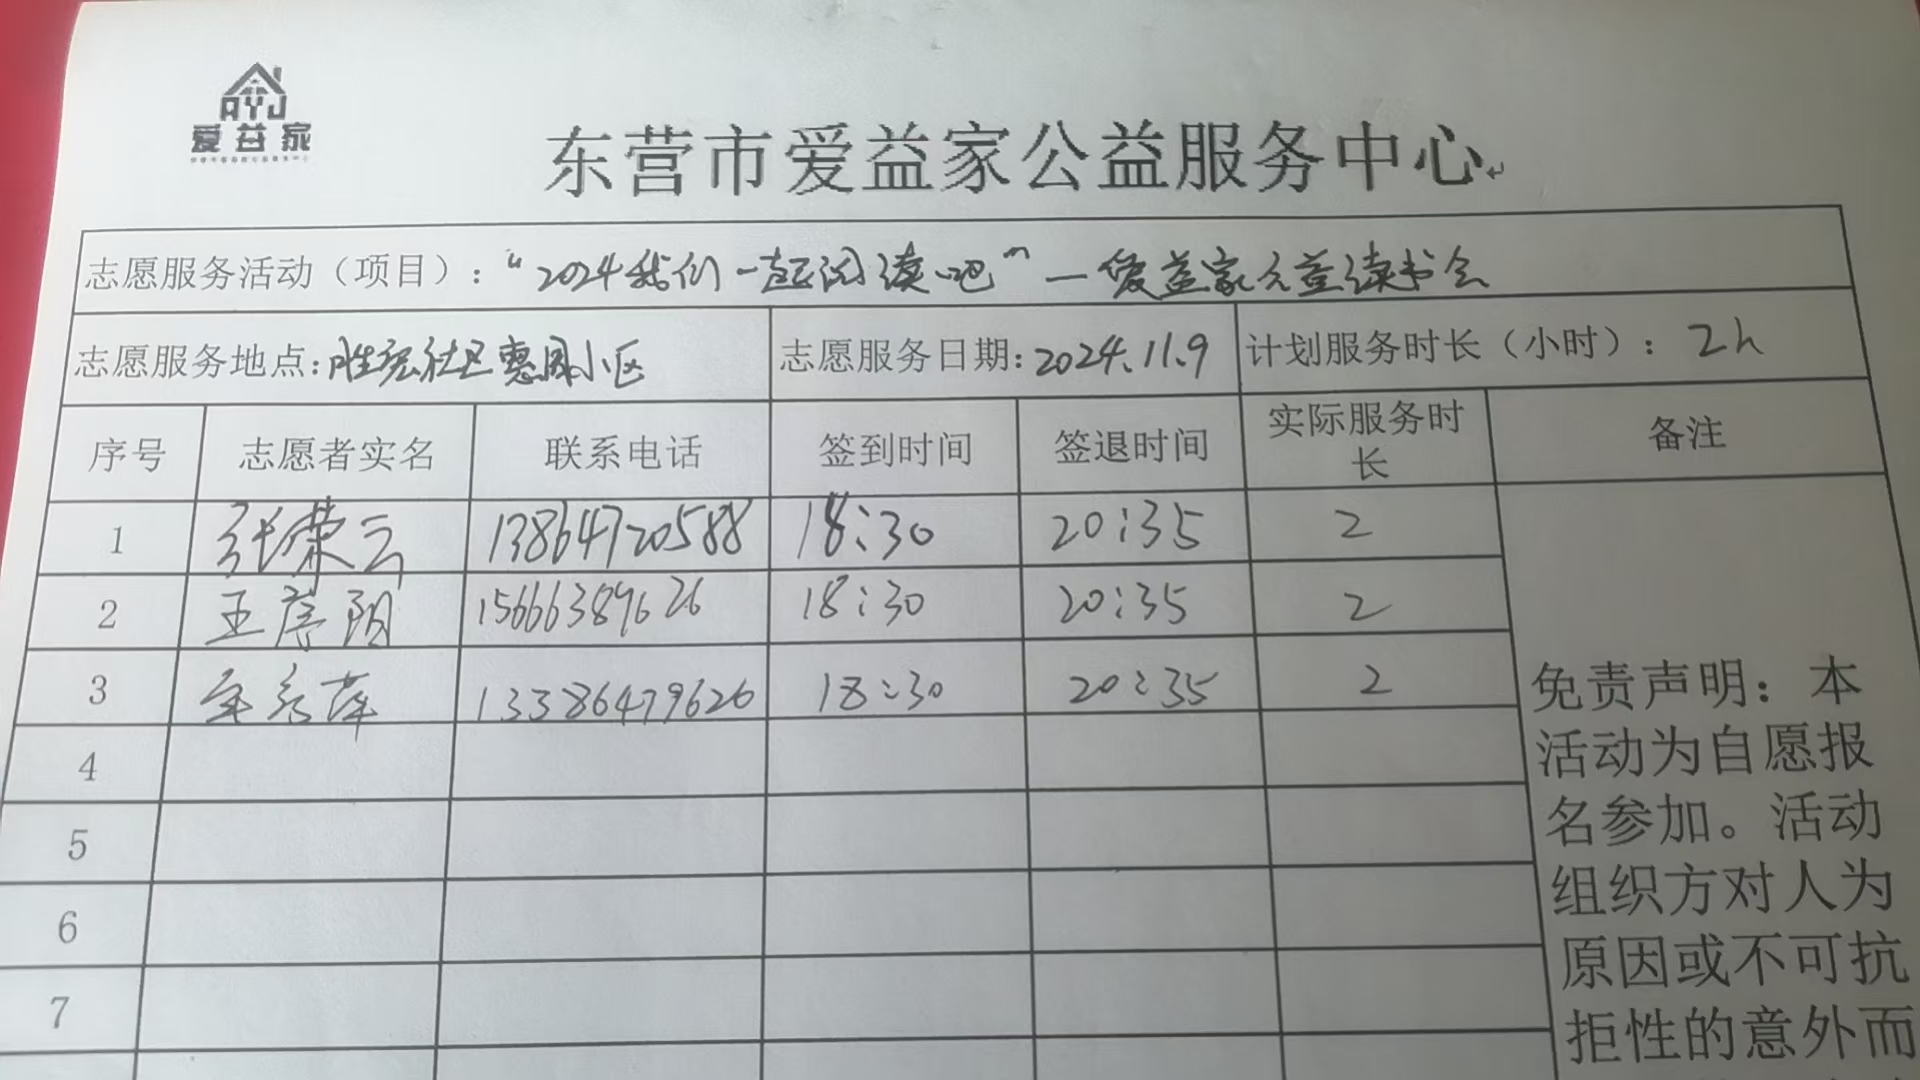 AYJ
爱益家
东营市爱益家公益服务中心
志愿服务活动（项目）：“2024我们一起阅读吧”—爱益家公益读书会
志愿服务地点：胜宏社区惠园小区 志愿服务日期：2024.11.9 计划服务时长（小时）：2h
序号 志愿者实名 联系电话 签到时间 签退时间 实际服务时长 备注
1 张荣云 13864720588 18:30 20:35 2
2 王 15666389626 18:30 20:35 2
3 13386479626 18:30 20:35 2
4
5
6
7
免责声明：本
活动为自愿报
名参加。活动
组织方对人为
原因或不可抗
拒性的意外而